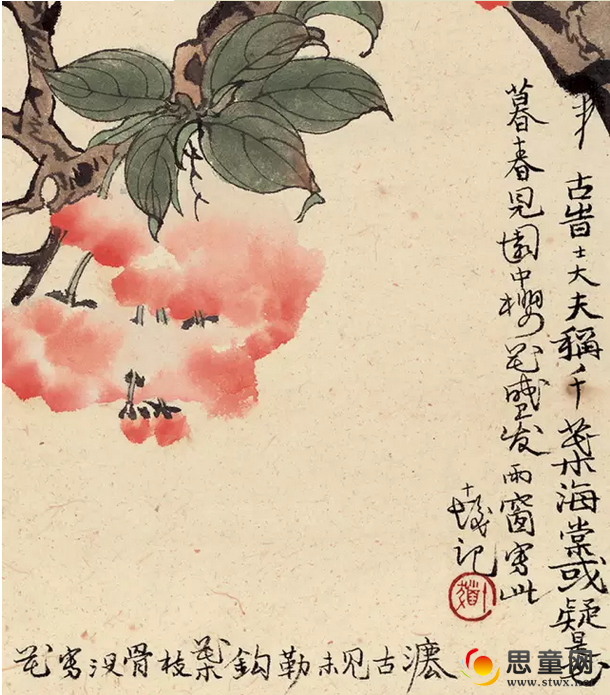 古昔士大夫稱千葉海棠或疑是
暮春見園中櫻花盛发雨窗寫此
十髮记
花寫没骨枝葉鈎勒未见古灋
思童网
www.stwx.net